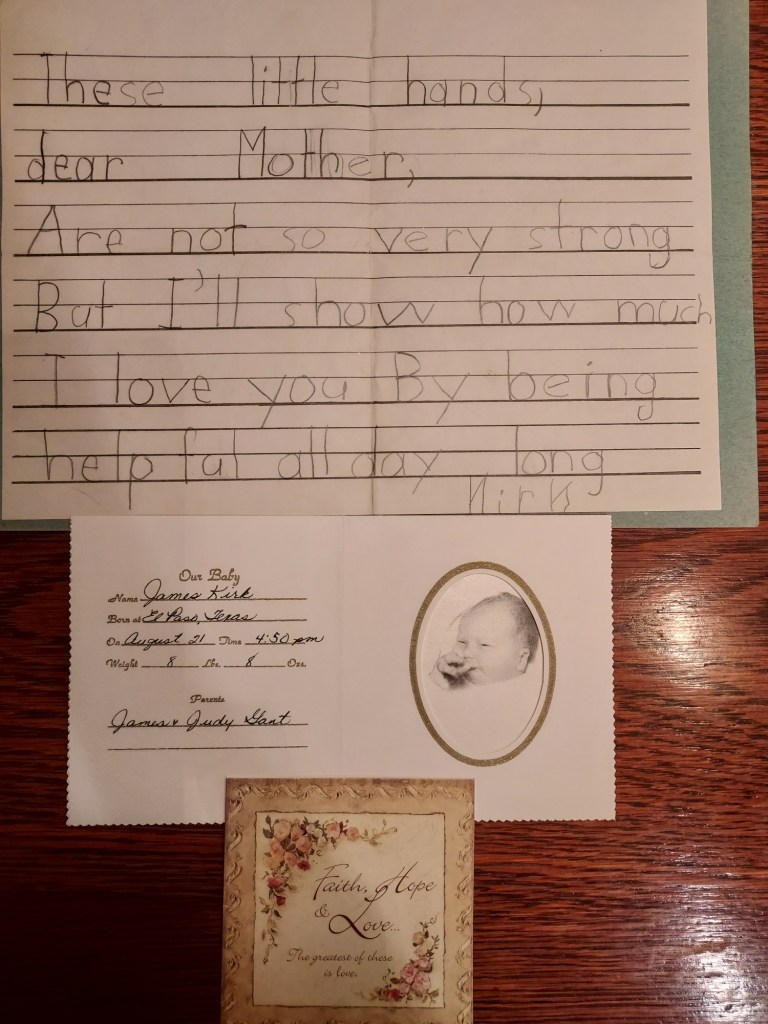 These little hands,
dear Mother,
Are not so very strong
But I'll show how much
I love you By being
helpful all day long
Kirk
Our Baby
Name James Kirk
Born at El Paso, Texas
On August 21 Time 4:50 pm
Weight 8 Lbs. 8 Ozs.
Parents
James & Judy Gant
Faith, Hope
& Love...
The greatest of these
is love.